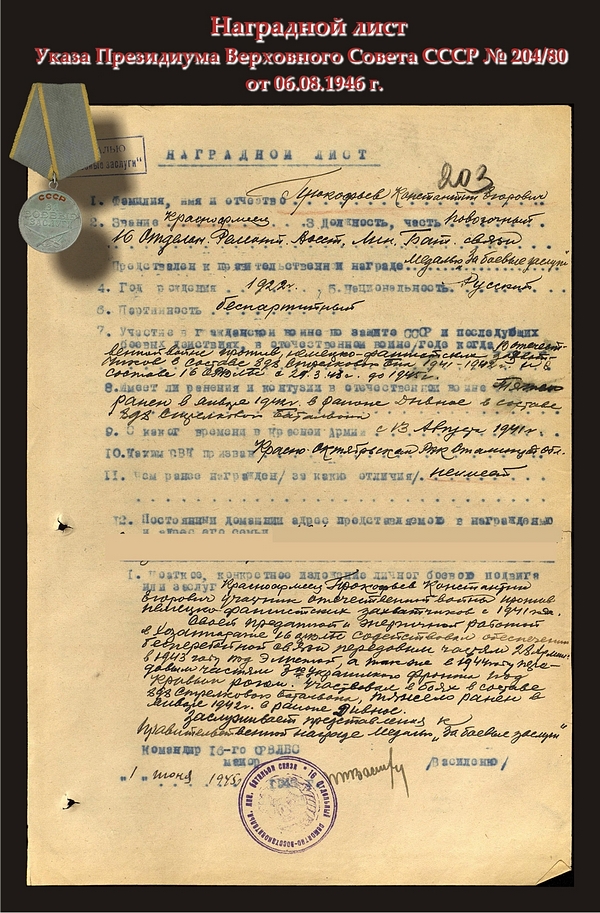 Наградной лист
Указа Президиума Верховного Совета СССР № 204/80
от 06.08.1946 г.
НАГРАДНОЙ ЛИСТ
203
СССР
ЗА БОЕВЫЕ ЗАСЛУГИ
1. Фамилия, имя и отчество Прокофьев Константин Егорович
2. Звание Красноармеец 3. Должность, часть Повозочный
16 Отделн. Ремонт. Восст. Лин. Бат. связи
Представлен к правительственной награде медалью "За боевые заслуги"
4. Год рождения 1922г. 5. Национальность Русский
6. Партийность беспартийный
7. Участие в гражданской войне по защите СССР и последующих
боевых действиях, в отечественной войне/где когда/ В отечест-
венной войне против немецко-фашистских захват-
чиков в составе стрелкового 1941-1942г. и в
составе 16 с 29.3.43г. до 1945г.
8. Имеет ли ранения и контузии в отечественной войне Тяжело
ранен в январе 1942г. в районе Дивное в составе
стрелкового батальона
9. С какого времени в Красной Армии с 13 Августа 1941г.
10. Каким РВК призван Красно-Октябрьским РВК Сталинград обл.
11. Чем ранее награжден/за какие отличия/. неимеет
12. Постоянный домашний адрес представляемого к награждению
и адрес его семьи
1. Краткое, конкретное изложение личного боевого подвига
или заслуг Красноармеец Прокофьев Константин
Егорович участник отечественной войны против
немецко-фашистских захватчиков с 1941 года.
Своей преданной и энергичной работой
содействовал обеспечению
бесперебойной связи передовым частям 28 Армии
в 1943 году под Элистой, а также в 1944 году пере-
довым частям 3го Украинского фронта под
Кривым рогом. Участвовал в боях в составе
стрелкового батальона, тяжело ранен в
январе 1942г. в районе Дивное.
Заслуживает представления к
Правительственной награде медаль "За боевые заслуги"
Командир 16-го ОРВЛБС
майор /Василенко/
"1" июня 1945г.